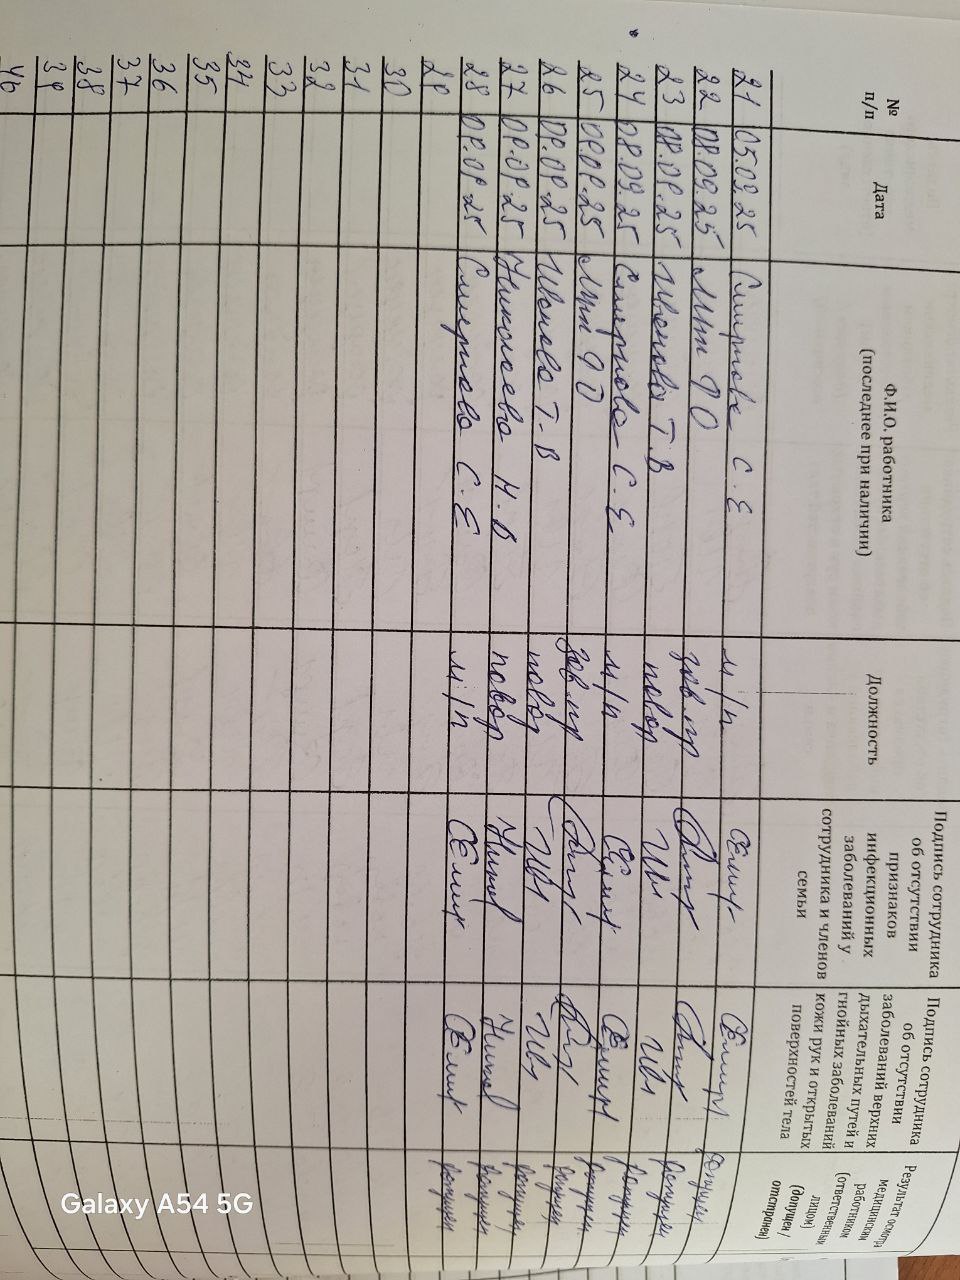 № п/п Дата Ф.И.О. работника (последнее при наличии) Должность Подпись сотрудника об отсутствии признаков инфекционных заболеваний у сотрудника и членов семьи Подпись сотрудника об отсутствии заболеваний верхних дыхательных путей и гнойных заболеваний кожи рук и открытых поверхностей тела Результат осмотра медицинским работником (ответственным лицом) (допущен / отстранен)
21 05.09.25 Смирнова С.Е м/п допущен
22 08.09.25 зав.пр допущен
23 08.09.25 Иванова Т.В повар Ив Ив допущен
24 08.09.25 Смирнова С.Е м/п допущен
25 09.09.25 зав.пр допущен
26 09.09.25 Иванова Т.В повар Ив Ив допущен
27 09.09.25 Николаева Н.В повар допущен
28 09.09.25 Смирнова С.Е м/п допущен
29
30
31
32
33
34
35
36
37
38
39
40
Galaxy A54 5G